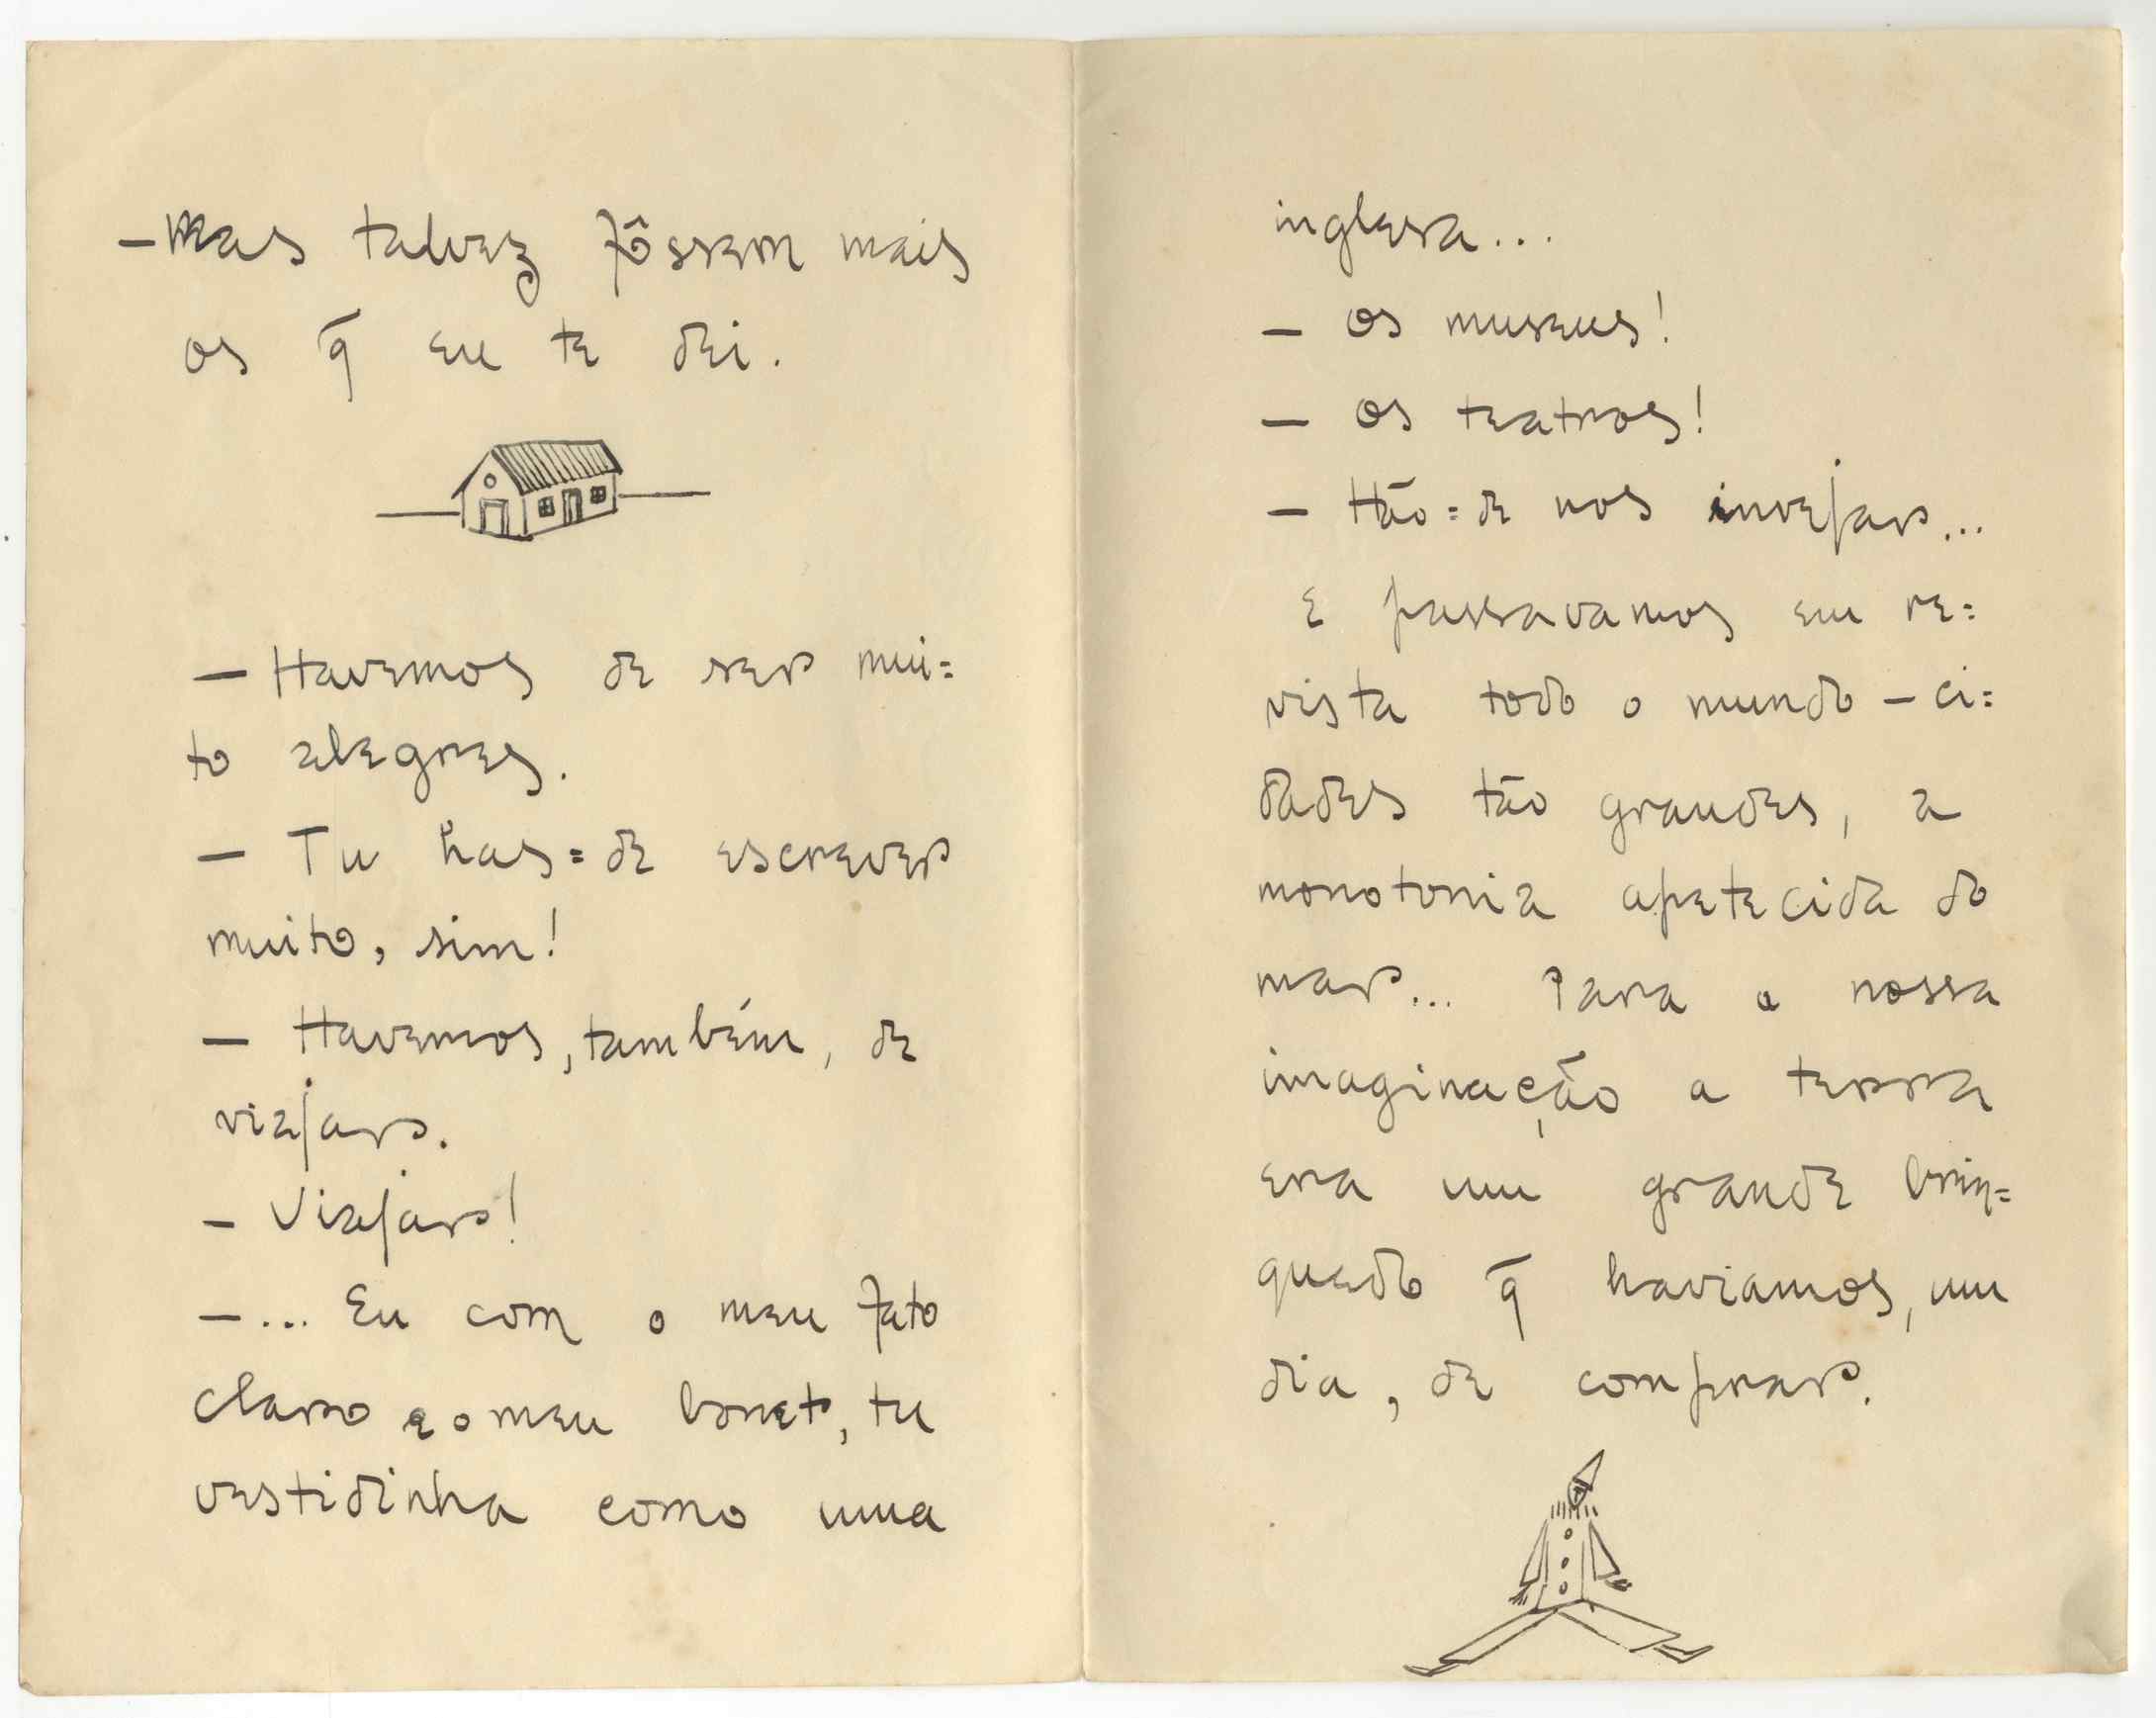 — Mas talvez fôssem mais
os q̄ eu te dei.
— Havemos de ser mui=
to alegres.
— Tu has=de escrever
muito, sim!
— Havemos, também, de
viajar.
— Viajar!
— ... Eu com o meu fato
claro e o meu bonet, tu
vestidinha como uma
inglesa...
— Os museus!
— Os teatros!
— Hão=de nos invejar...
E passavamos em re=
vista todo o mundo — ci=
dades tão grandes, a
monotonia apetecida do
mar... Para a nossa
imaginação a terra
era um grande brin=
quedo q̄ haviamos, um
dia, de comprar.